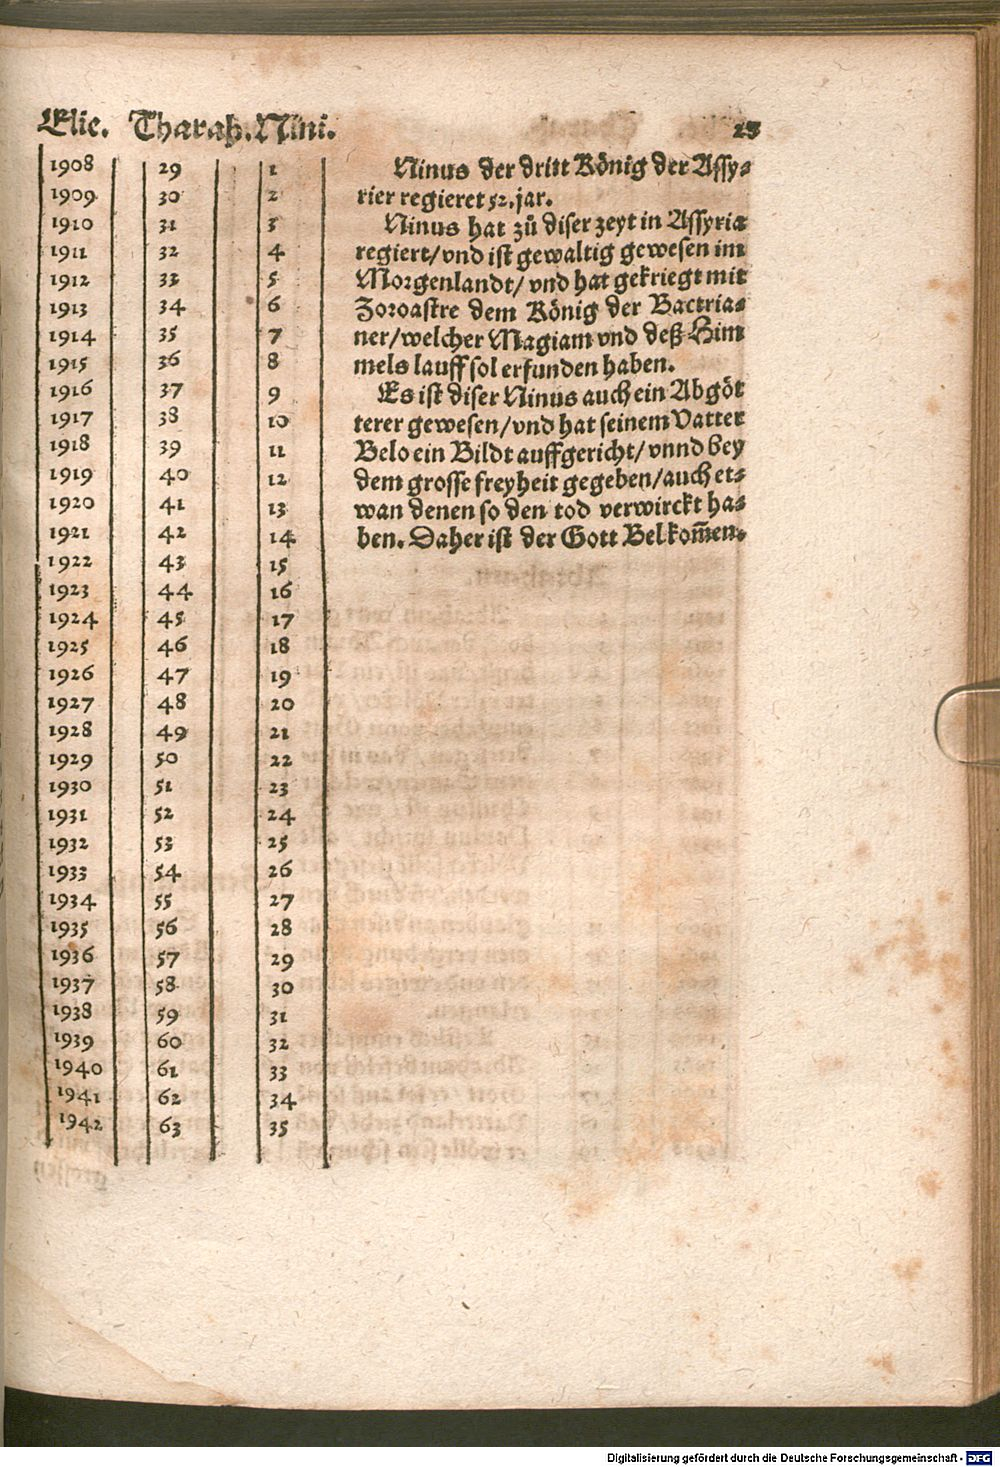 Elie. Tharah. Nini. 23
1908 29 1
1909 30 2
1910 31 3
1911 32 4
1912 33 5
1913 34 6
1914 35 7
1915 36 8
1916 37 9
1917 38 10
1918 39 11
1919 40 12
1920 41 13
1921 42 14
1922 43 15
1923 44 16
1924 45 17
1925 46 18
1926 47 19
1927 48 20
1928 49 21
1929 50 22
1930 51 23
1931 52 24
1932 53 25
1933 54 26
1934 55 27
1935 56 28
1936 57 29
1937 58 30
1938 59 31
1939 60 32
1940 61 33
1941 62 34
1942 63 35
Ninus der dritt König der Assy-
rier regieret 52. jar.
Ninus hat zů diser zeyt in Assyria
regiert/vnd ist gewaltig gewesen im
Morgenlandt/vnd hat gekriegt mit
Zoroastre dem König der Bactria-
ner/welcher Magiam vnd deß Him
mels lauff sol erfunden haben.
Es ist diser Ninus auch ein Abgöt
terer gewesen/vnd hat seinem Vatter
Belo ein Bildt auffgericht/vnnd bey
dem grosse freyheit gegeben/auch et-
wan denen so den tod verwirckt ha-
ben. Daher ist der Gott Bel kom̃en.
Digitalisierung gefördert durch die Deutsche Forschungsgemeinschaft - DFG